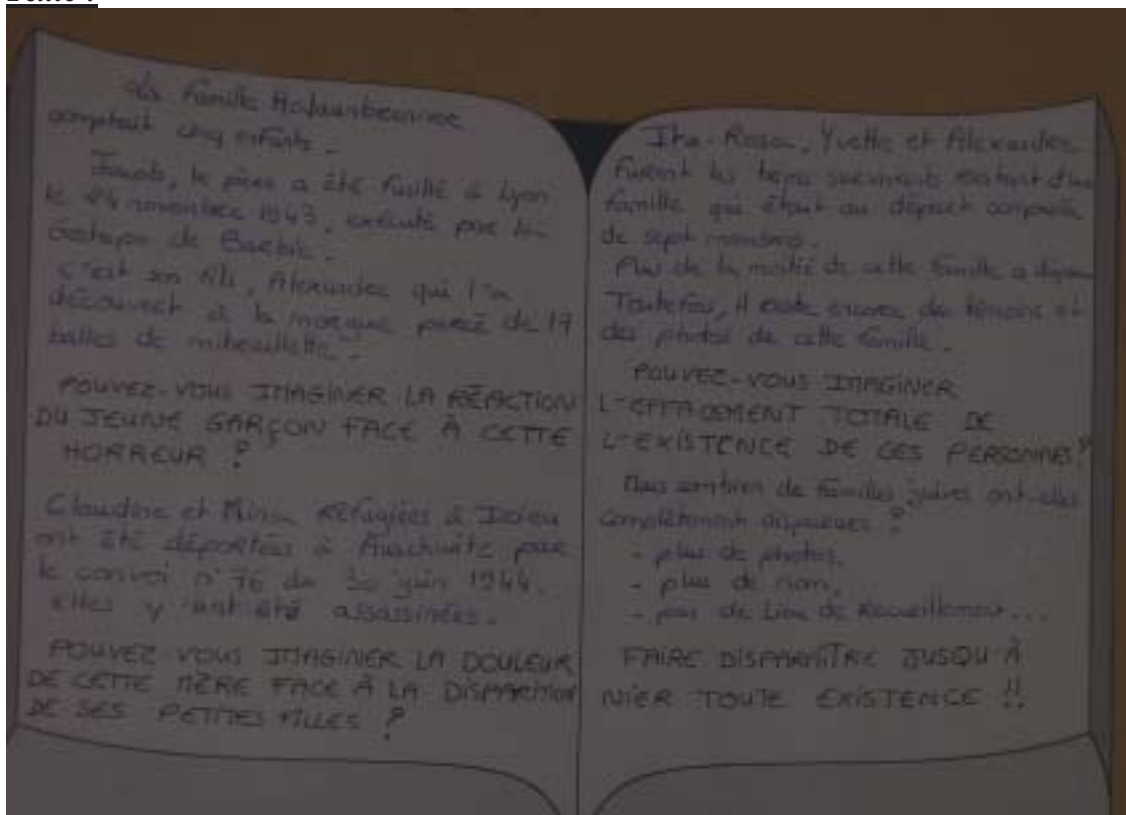 La famille Halaunbrenner
comptait cinq enfants.
Jacob, le père a été fusillé à Lyon
le 24 novembre 1943, exécuté par la
Gestapo de Barbie.
C'est son fils, Alexandre qui l'a
découvert à la morgue percé de 17
balles de mitraillette.
POUVEZ-VOUS IMAGINER LA RÉACTION
DU JEUNE GARÇON FACE À CETTE
HORREUR ?
Claudine et Mina, réfugiées à Izieu
ont été déportées à Auschwitz par
le convoi n°76 du 30 juin 1944.
elles y ont été assassinées.
POUVEZ-VOUS IMAGINER LA DOULEUR
DE CETTE MÈRE FACE À LA DISPARITION
DE SES PETITES FILLES ?
Ita-Rosa, Yvette et Alexandre
furent les survivants d'une
famille qui était au départ composée
de sept membres.
Plus de la moitié de cette famille a disparu
Toutefois, il existe encore des témoins et
des photos de cette famille.
POUVEZ-VOUS IMAGINER
L'EFFACEMENT TOTALE DE
L'EXISTENCE DE CES PERSONNES ?
Mais combien de familles juives ont-elles
complètement disparues ?
- plus de photos,
- plus de nom,
- pas de Lieu de Recueillement...
FAIRE DISPARAÎTRE JUSQU'À
NIER TOUTE EXISTENCE !!